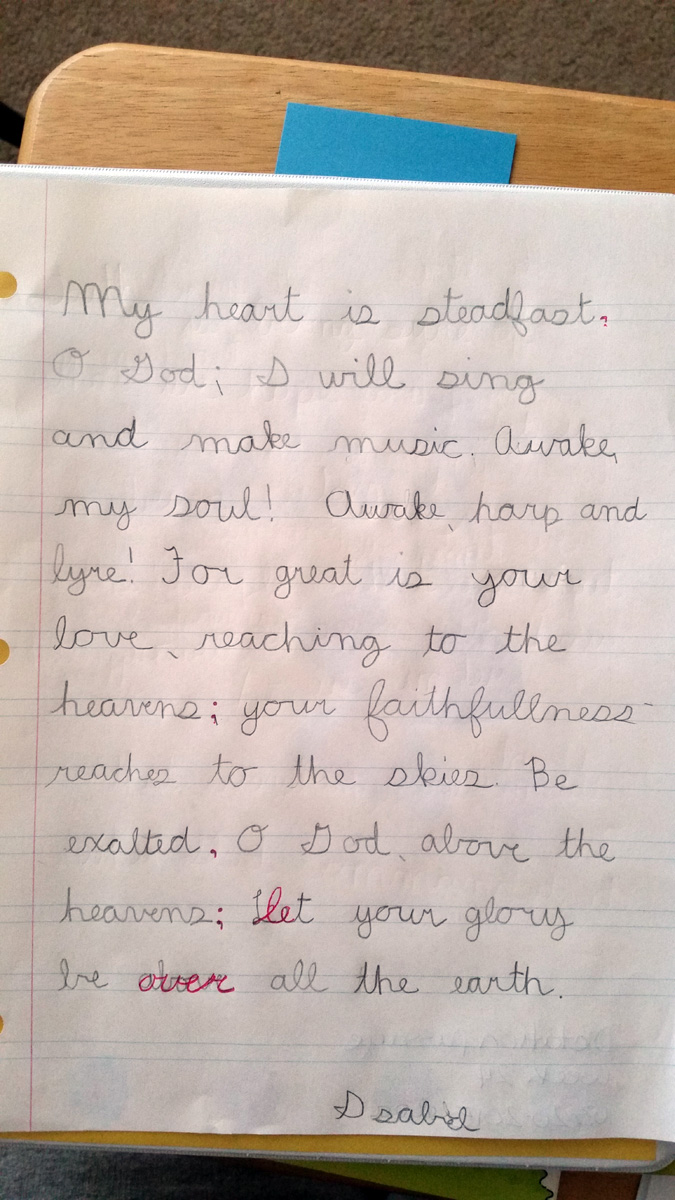 My heart is steadfast,
O God; I will sing
and make music. Awake,
my soul! Awake, harp and
lyre! For great is your
love, reaching to the
heavens; your faithfullness
reaches to the skies. Be
exalted, O God, above the
heavens; let your glory
be over all the earth.
Isabel